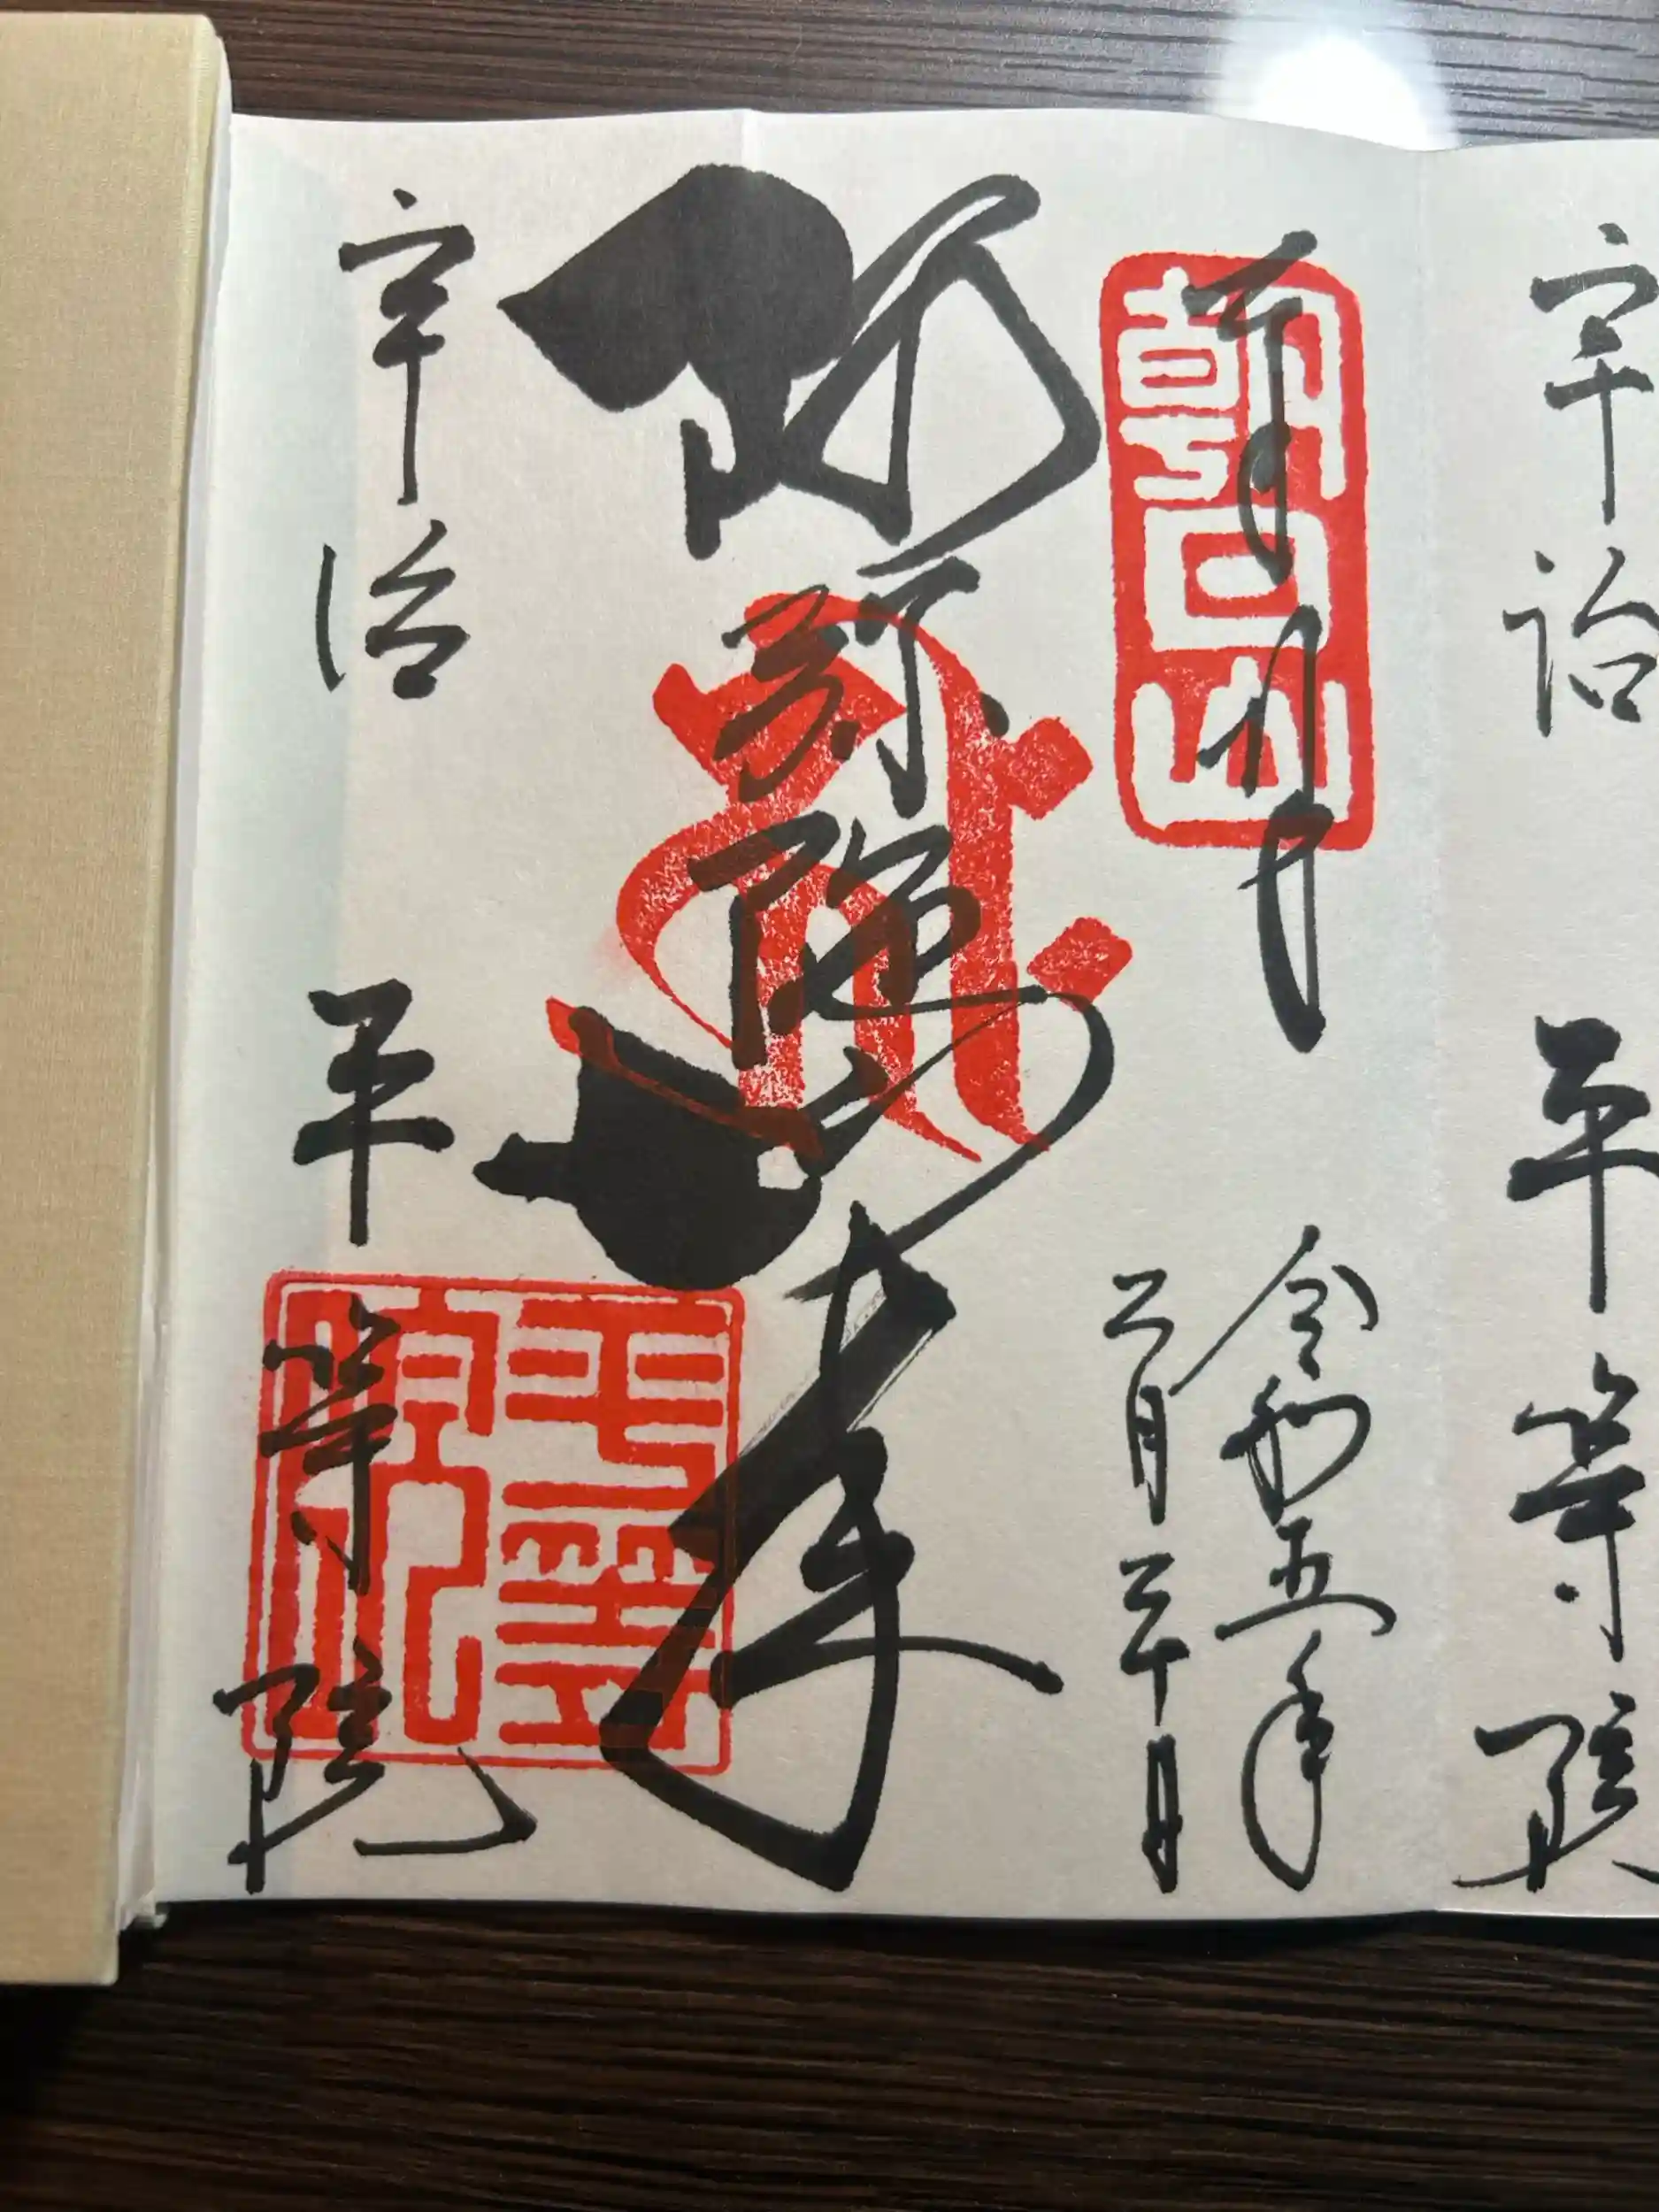 宇治 平等院
奉拝
朝日山
令和五年
二月二十日
阿弥陀如来
宇治 平等院
平等
院印